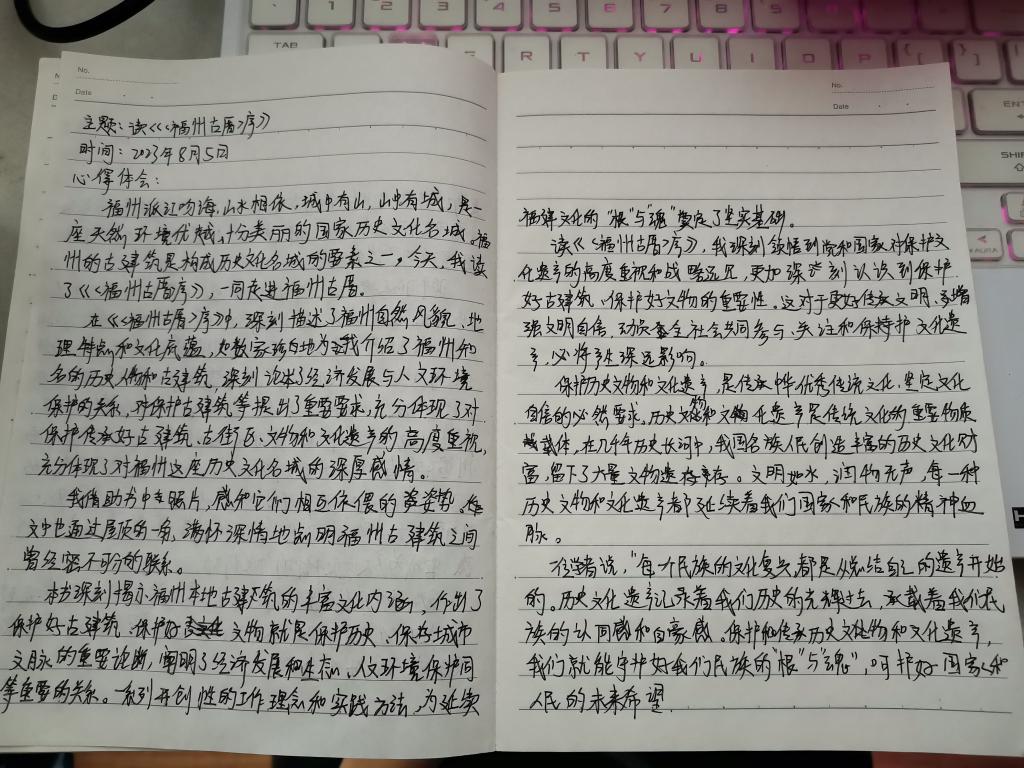 No.
Date
主题：读《<福州古厝>序》
时间：2023年8月5日
心得体会：
福州派江吻海，山水相依，城中有山，山中有城，是一
座天然环境优越，十分美丽的国家历史文化名城。福
州的古建筑是构成历史文化名城的要素之一。今天，我读
了《<福州古厝>序》，一同走进福州古厝。
在《<福州古厝>序》中，深刻描述了福州自然风貌、地
理特点和文化底蕴，如数家珍地为我介绍了福州知
名的历史人物和古建筑，深刻论述了经济发展与人文环境
保护的关系，对保护古建筑等提出了重要要求，充分体现了对
保护传承好古建筑、古街区、文物和文化遗产的高度重视，
充分体现了对福州这座历史文化名城的深厚感情。
我借助书中专照片，感和它们相互依偎的姿势。作
文中也通过屋顶的一角，满怀深情地点明福州古建筑之间
曾经密不可分的联系。
本书深刻揭示福州本地古建筑的丰富文化内涵，作出了
保护好古建筑、保护好文物就是保护历史、保存城市
文脉的重要论断，阐明了经济发展和生态、人文环境保护同
等重要的关系。一系列开创性的工作理念和实践方法，为延续
No.
Date
福建文化的"根"与"魂"奠定了坚实基础。
读《<福州古厝>序》，我深刻领悟到党和国家对保护文
化遗产的高度重视和战略远见，更加深刻认识到保护
好古建筑、保护好文物的重要性。这对于更好传承文明、增
强文明自信，动员全社会共同参与、关注和保护文化遗
产，必将产生深远影响。
保护历史文物和文化遗产，是传承中华优秀传统文化，坚定文化
自信的必然要求。历史文物和文化遗产是传统文化的重要物质
载体，在几千年历史长河中，我国各族人民创造丰富的历史文化财
富，留下了大量文物遗存。文明如水，润物无声，每一种
历史文物和文化遗产都延续着我们国家和民族的精神血
脉。
有学者说，"每个民族的文化复兴，都是从总结自己的遗产开始
的。历史文化遗产记录着我们历史的光辉过去，承载着我们民
族的认同感和自豪感。保护和传承历史文物和文化遗产，
我们就能守护好我们民族的"根"与"魂"，呵护好国家和
人民的未来希望
TAB
E
R
T
Y
U
I
O
P